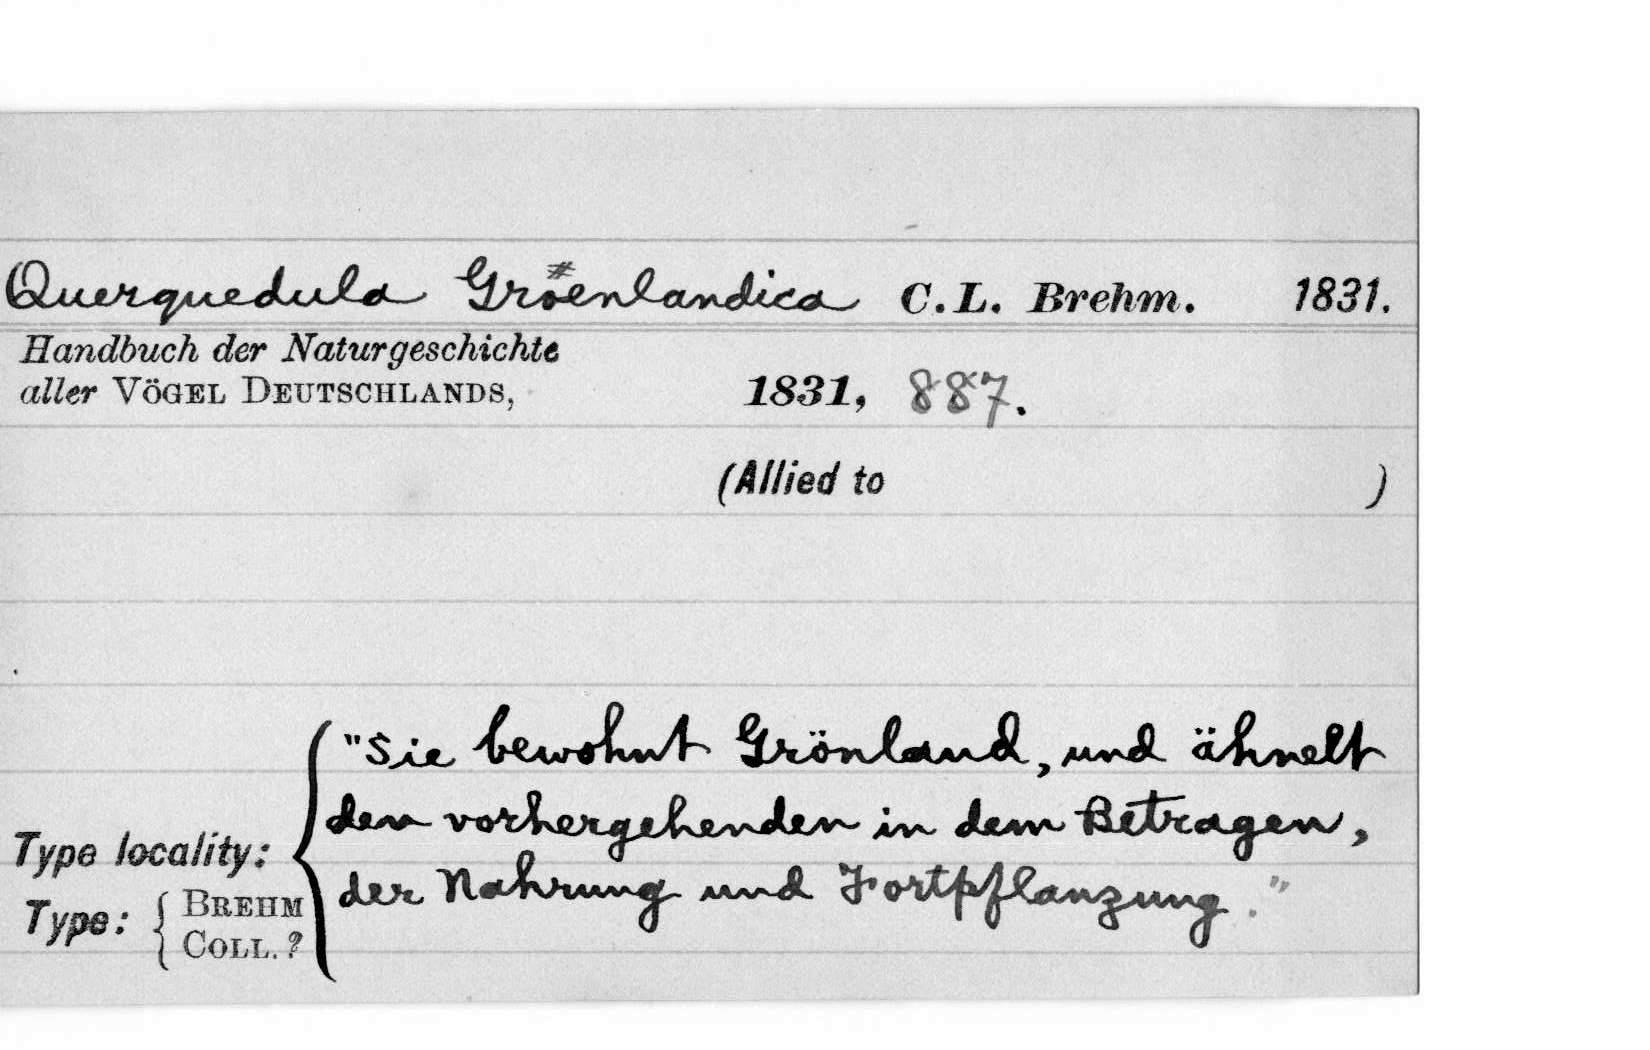 Querquedula Groenlandica C.L. Brehm. 1831.
Handbuch der Naturgeschichte
aller VÖGEL DEUTSCHLANDS, 1831, 887.
(Allied to )
"Sie bewohnt Grönland, und ähnelt
den vorhergehenden in dem Betragen,
Type locality:
der Nahrung und Fortpflanzung."
Type: { BREHM
COLL. ?